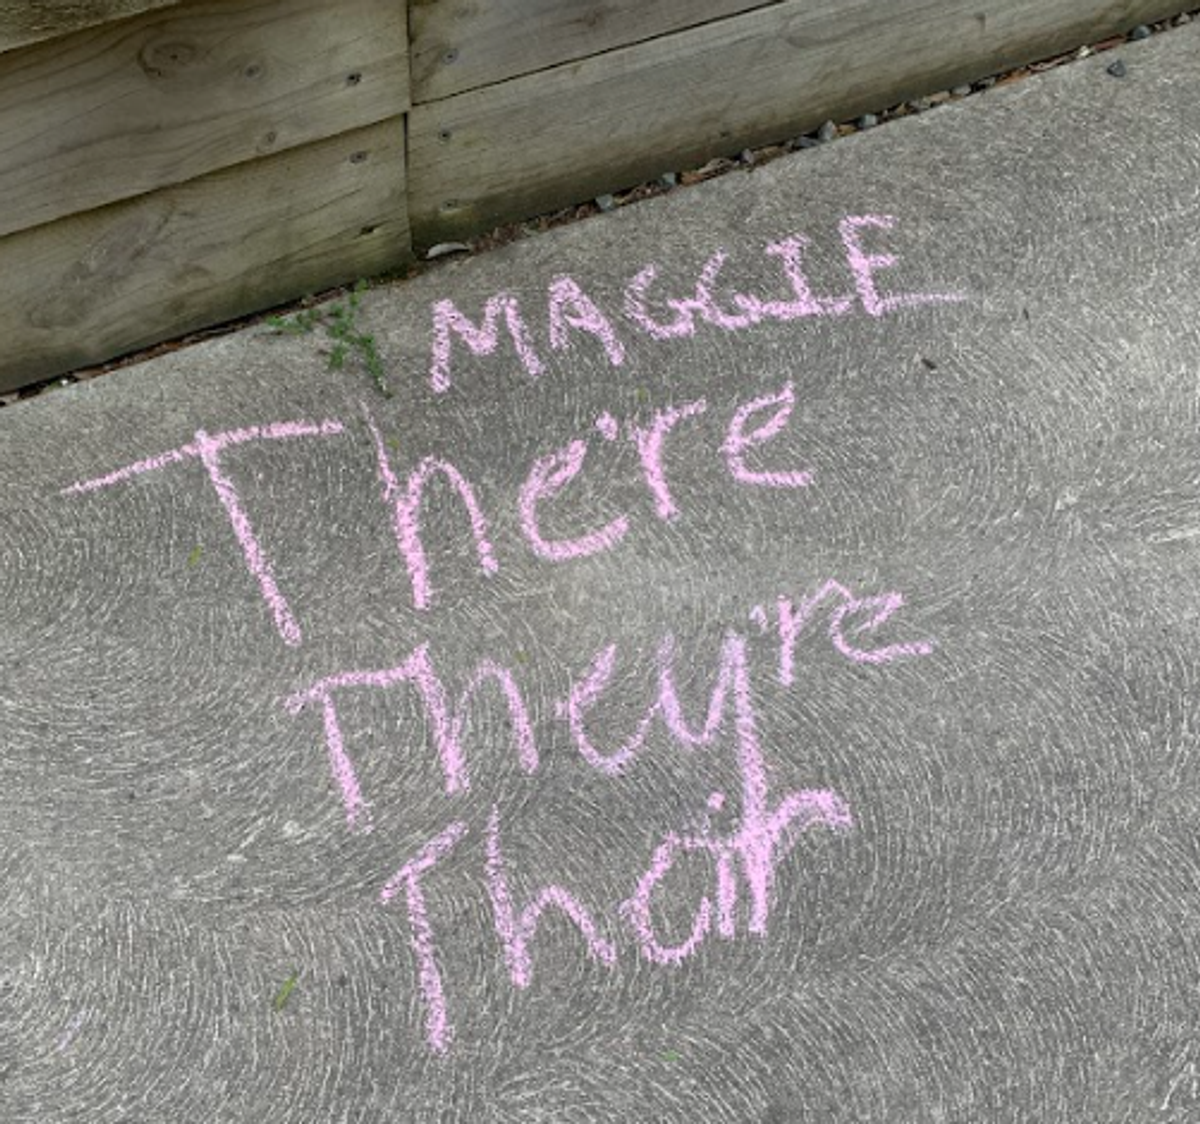 MAGGIE
The're
They're
Thair